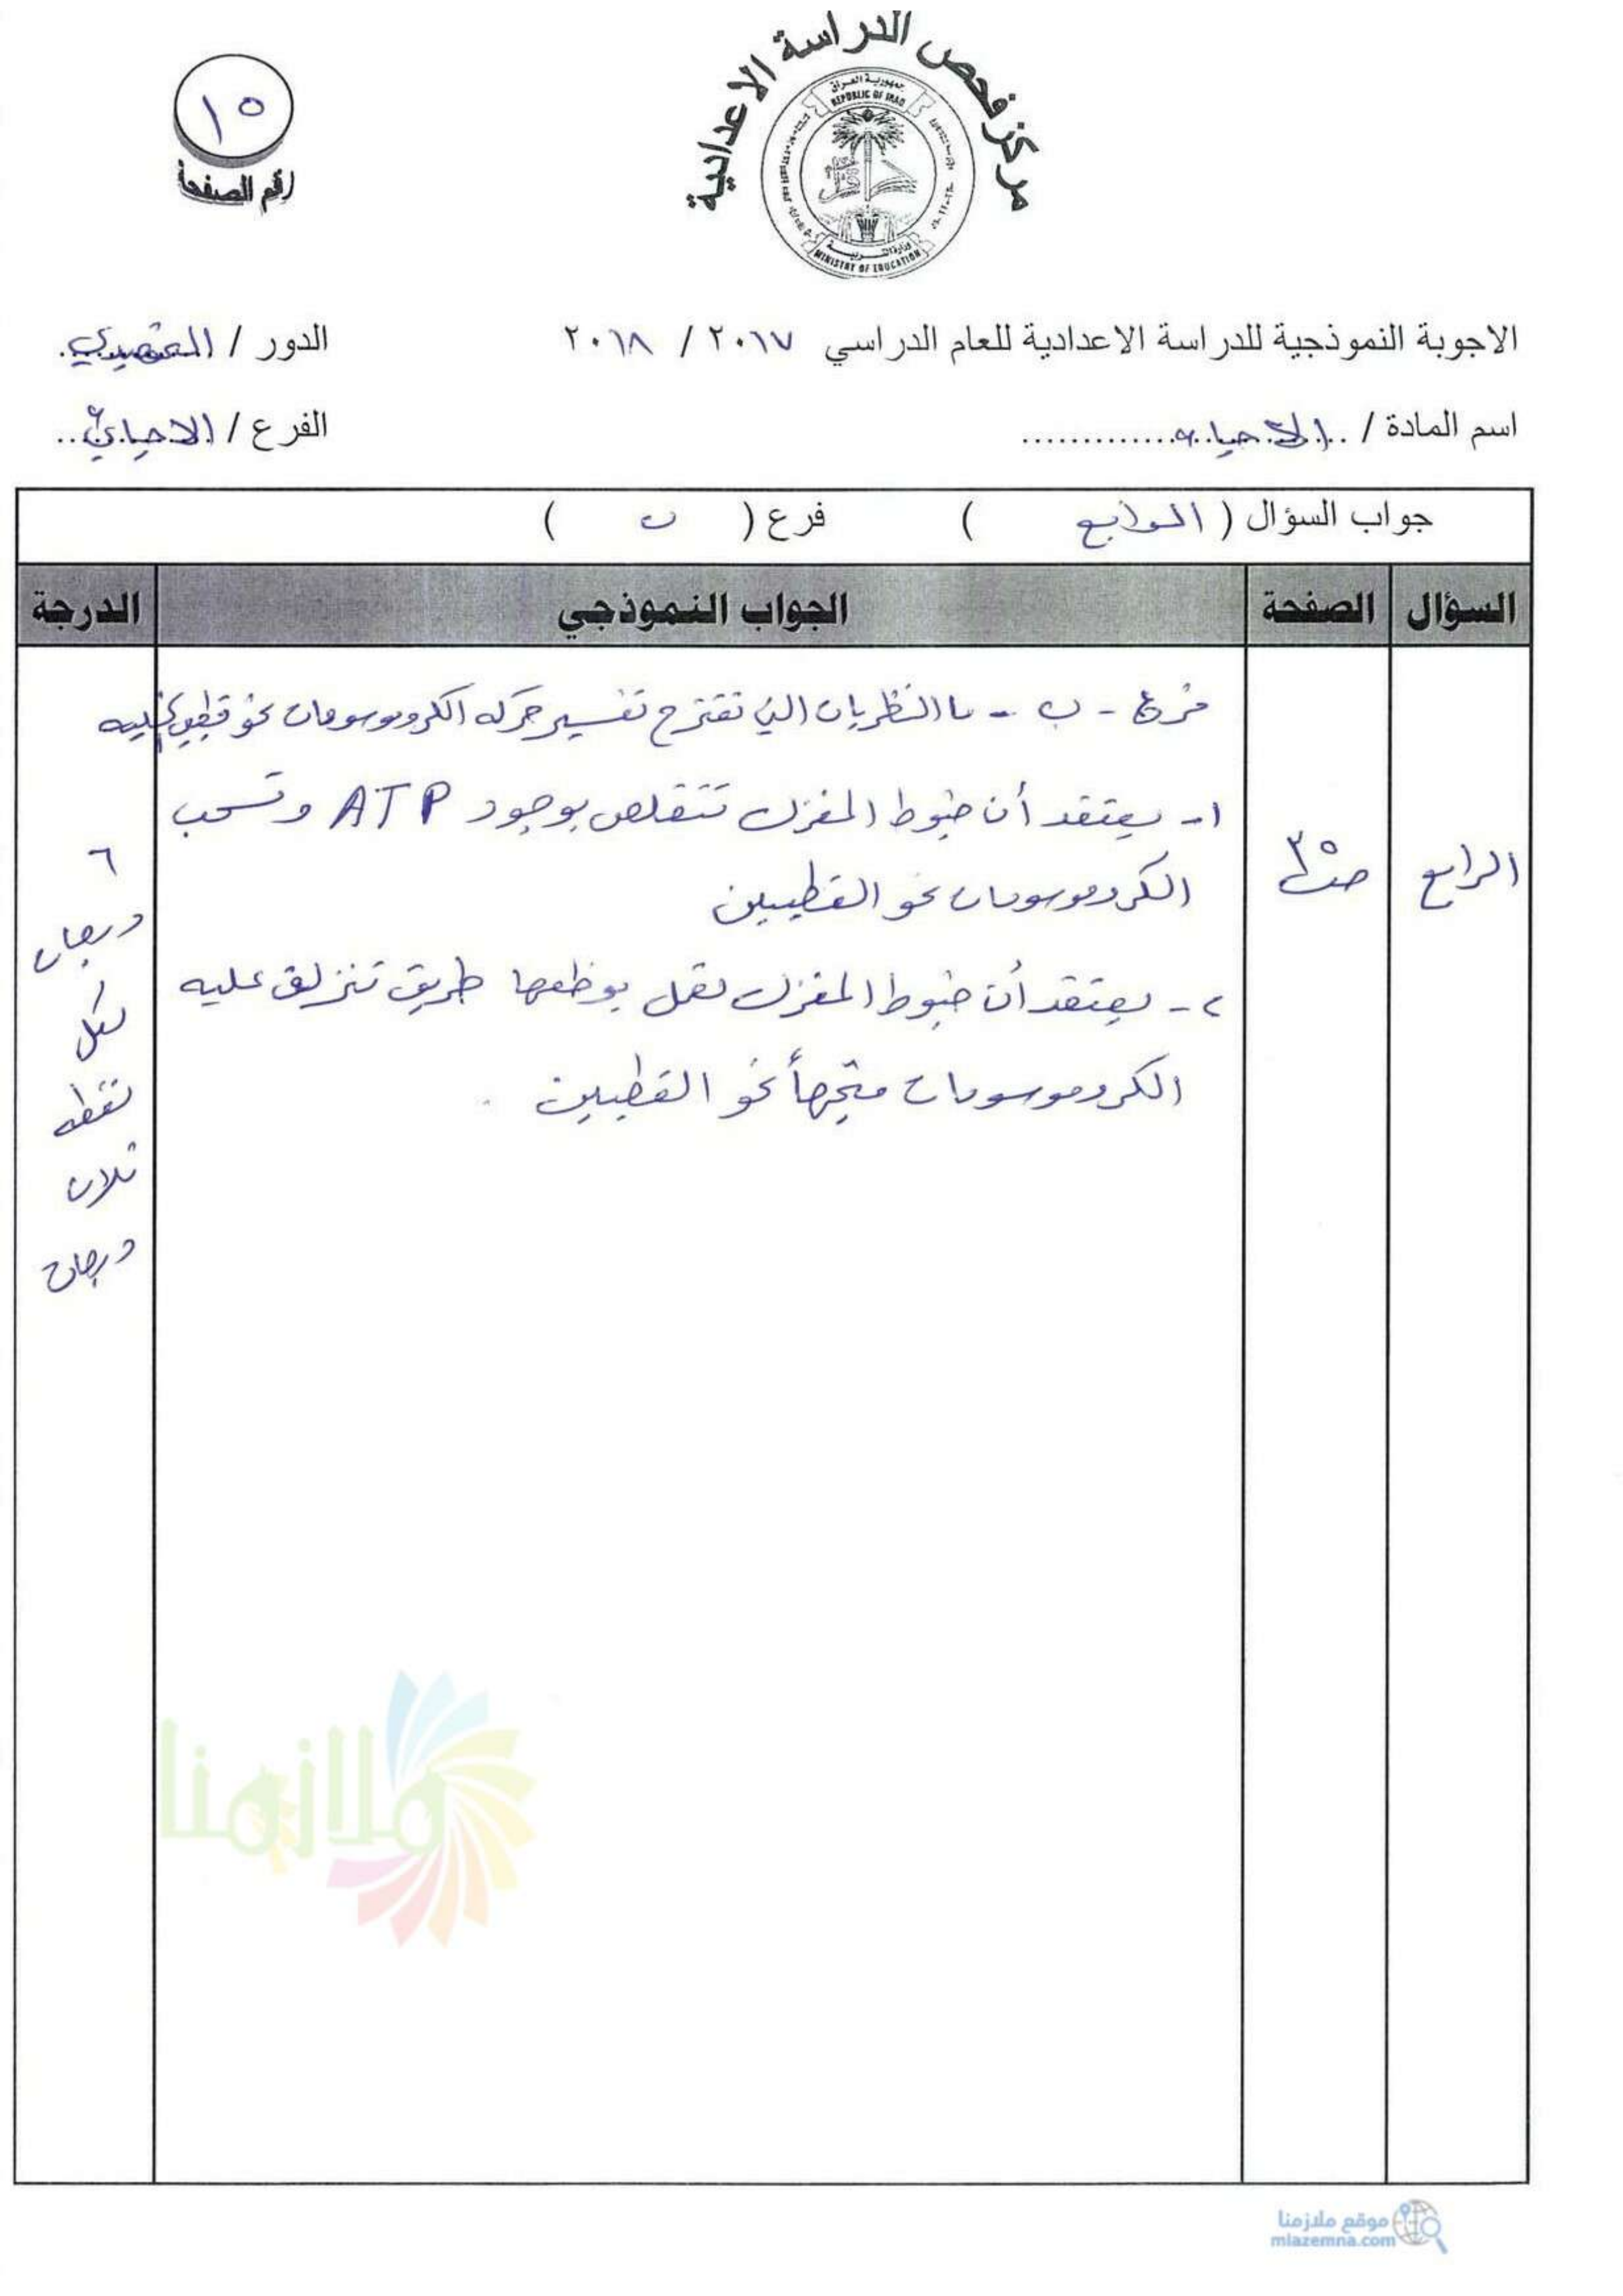 مركز فحص الدراسة الاعدادية
جمهورية العراق
REPUBLIC OF IRAQ
وزارة التربية
MINISTRY OF EDUCATION
١٥
رقم الصفحة
الاجوبة النموذجية للدراسة الاعدادية للعام الدراسي ٢٠١٧ / ٢٠١٨
الدور / التمهيدي
اسم المادة / الاحياء
الفرع / الاحيائي
جواب السؤال ( الرابع ) فرع ( ب )
السؤال الصفحة الجواب النموذجي الدرجة
فرع - ب - ما النظريات التي تقترح تفسير حركه الكروموسومات نحو قطبي الخليه
١- يعتقد أن خيوط المغزل تتقلص بوجود ATP وتسحب
الكروموسومات نحو القطبين
٢- يعتقد أن خيوط المغزل تعمل بوظعها طريق تنزلق عليه
الكروموسومات متجهاً نحو القطبين .
الرابع
ص٣٥
٦
درجات
لكل
نقطه
ثلاث
درجات
ملازمنا
موقع ملازمنا
mlazemna.com